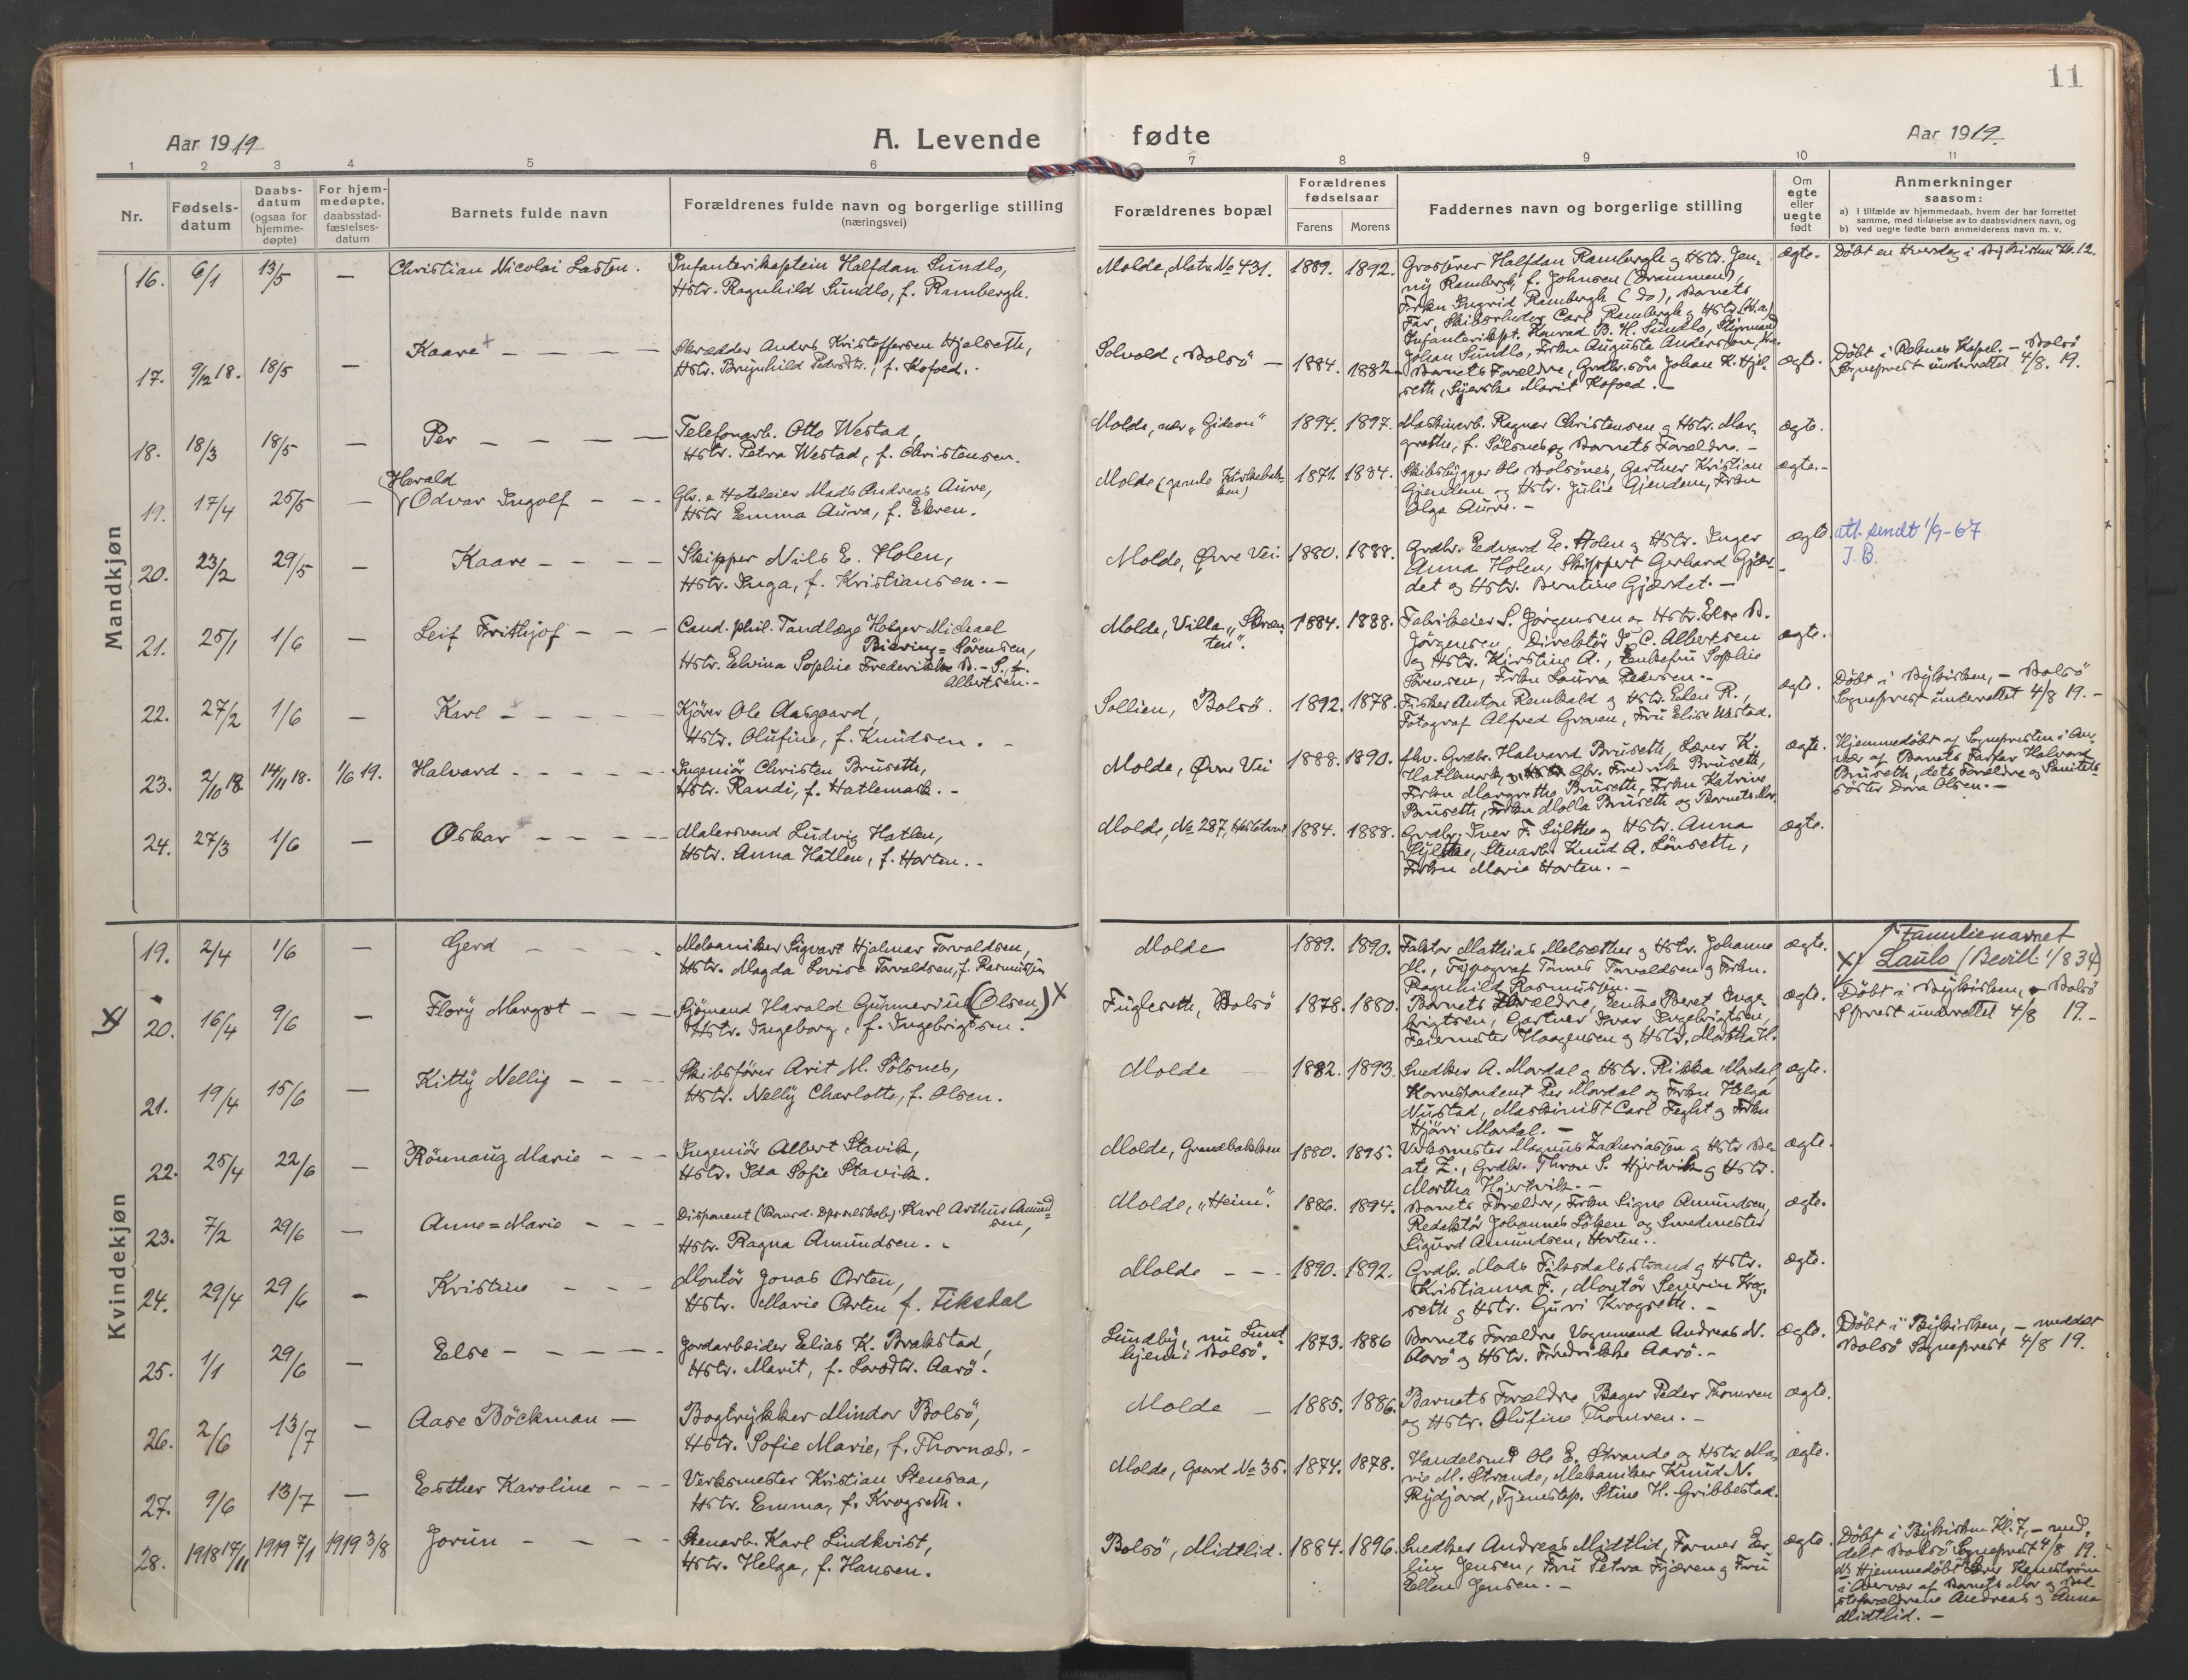 11
Aar 1919
A. Levende fødte
Aar 1919.
1 2 3 4 5 6 7 8 9 10 11
Nr.
Fødsels-
datum
Daabs-
datum
(ogsaa for
hjemme-
døpte)
For hjem-
medøpte,
daabsstad-
fæstelses-
datum
Barnets fulde navn
Forældrenes fulde navn og borgerlige stilling
(næringsvei)
Forældrenes bopæl
Forældrenes
fødselsaar
Farens Morens
Faddernes navn og borgerlige stilling
Om
egte
eller
uegte
født
Anmerkninger
saasom:
a) i tilfælde av hjemmedaab, hvem der har forrettet
samme, med tilføielse av to daabsvidners navn, og
b) ved uegte fødte barn anmelderens navn m. v.
Mandkjøn
16. 6/1 13/5 — Christian Nicolai Lasson.
Infanterikaptein Halfdan Sundlo,
Hstr. Ragnhild Sundlo, f. Rambergh.
Molde, Matr. No 431. 1889. 1892.
Grosserer Halfdan Rambergh og Hstr. Jen-
ny Rambergh, f. Johnsen (Drammen),
Frkn Ingrid Rambergh (do), Barnets
Far, Skibsreder Carl Rambergh og Hstr.
Infanterikpt. Konrad B. H. Sundlo, Styrmand
Johan Sundlo, Frkn Auguste Andersson,
ægte. Døbt en Hverdag i Bykirken Kl. 12.
17. 9/12 18. 18/5 — Kaare — — — —
Skrædder Anders Kristoffersen Hjelseth,
Hstr. Brynhild Pedersdtr., f. Kofoed.
Solvold, Bolsö — 1884. 1882.
Barnets Forældre, Grdbr.sön Johan K. Hjel-
seth, Syerske Marit Kofoed. —
ægte. Døbt i Røbnes Kapel. — Bolsö
Sogneprest underrettet 4/8. 19.
18. 18/3 18/5 — Per — — — —
Telefonarb. Otto Westad,
Hstr. Petra Westad, f. Christensen.
Molde, nær „Gideon" 1894. 1897.
Maskinarb. Ragnar Christensen og Hstr. Mar-
grethe, f. Sölsnes og Barnets Forældre. —
ægte.
19. 17/4 25/5 — Harald
Odvar Ingolf — —
Gbr. & Hoteleier Mads Andreas Aure,
Hstr Emma Aure, f. Ekren.
Molde (gamle Kirkebak-
ken) 1871. 1884.
Skibsbygger Ole Bolsönes, Gartner Kristian
Gjendem og Hstr. Julie Gjendem, Frkn
Olga Aure. —
ægte.-
20. 23/2 29/5 — Kaare — — — —
Skipper Nils E. Holen,
Hstr. Inga, f. Kristiansen. —
Molde, Øvre Vei 1880. 1888.
Grdbr. Edvard E. Holen og Hstr. Inger
Anna Holen, Skibsført Gerhard Gjær-
det og Hstr. Berntine Gjærdet. —
ægte. att. sendt 1/9-67
J. B.
21. 25/1 1/6 — Leif Frithjof — — —
Cand. phil. Tandlæge Holger Michael
Bisving= Sörensen,
Hstr. Elvina Sophie Frederikke B.- S. f.
Albertsen.-
Molde, Villa „Skræn-
ten". 1884. 1888.
Fabrikeier S. Jørgensen og Hstr. Else B.
Jörgensen, Direktör P. C. Albertsen
og Hstr. Kirstine A., Enkefru Sophie
Sörensen, Frkn Laura Pedersen.-
ægte.
22. 27/2 1/6 — Karl — — — —
Kjörer Ole Aasgaard,
Hstr. Olufine, f. Knudsen. —
Sollien, Bolsö. 1892. 1878.
Fisker Anton Rambald og Hstr. Elen R.,
Fotograf Alfred Groven, Fru Elise Westad.
ægte. Døbt i Bykirken, — Bolsö
Sogneprest underrettet 4/8 19.-
23. 2/10 18. 14/11 18. 1/6 19. Halvard — — — — —
Ingeniör Christen Bruseth,
Hstr. Randi, f. Hatlemark. —
Molde, Øvre Vei 1888. 1890.
fhv. Grdbr. Halvard Brusethe, Lærer K.
Hatlemark, Gbr. Fredrik Brusethe,
Frkn Margrethe Brusethe, Frkn Katrine
Brusethe, Frkn Molla Brusethe og Barnets Mor.
ægte. Hjemmedøbt af Sognepresten i
af Barnets Farfar Halvard
Brusethe, dets Forældre og Sanitets-
söster Dora Olsen. —
24. 27/3 1/6 — Oskar — — — —
Malersvend Ludvig Hatlen,
Hstr. Anna Hatlen, f. Horten. -
Molde, No 287, 1884. 1888.
Grdbr. Iver F. Sylthe og Hstr. Anna
Sylthe, Stenarb. Knud A. Lönseth,
Frkn Marie Horten. —
ægte.
Kvindekjøn
19. 2/4 1/6 — Gerd — — — —
Mekaniker Sigvart Hjalmar Torvaldsen,
Hstr. Magda Lovise Torvaldsen, f. Rasmussen
Molde 1889. 1890.
Faktor Mathias Melsæther og Hstr. Johanne
M., Typograf Tönnes Torvaldsen og Frkn.
Ragnhild Rasmussen. —
ægte. Familienavnet
X) Laulo (Bevill. 1/8 34)
X 20. 16/4 9/6 — Flory Margot — — —
Sjömand Harald Gunnerius (Olsen) X
Hstr. Ingeborg, f. Ingebrigtsen.
Fuglesethe, Bolsö 1878. 1880.
Barnets Forældre, Enke Beret Inge-
brigtsen, Gartner Ivar Ingebrigtsen,
Feiermester Haagensen og Hstr. Martha H.
ægte. Døbt i Bykirken, Bolsö
Sprest underrettet 4/8 19.-
21. 19/4 15/6 — Kitty Nellig — — —
Skibsfører Arit M. Sölsnes,
Hstr. Nelly Charlotte, f. Olsen.
Molde 1882. 1893.
Snedker A. Mordal og Hstr. Rikka Mordal,
Korrespondent Per Mordal og Frkn Helga
Nustad, Maskinist Carl Feght og Frkn
Hjörd Mordal. —
ægte.
22. 25/4 22/6 — Rönnaug Marie — — —
Ingeniör Albert Stavik,
Hstr. Ida Sofie Stavik.
Molde, Grandbakken 1880. 1895.
Verksmester Magnus Zachariassen og Hstr Be-
ate Z., Grdbr. Thron S. Hjertvik og Hstr.
Martha Hjertvik. —
ægte.
23. 7/2 29/6 — Anne=Marie — — —
Disponent Karl Arthur Amund-
sen,
Hstr. Ragna Amundsen. -
Molde, „Heim". 1886. 1894.
Barnets Forældre, Frkn Signe Amundsen,
Redaktör Johannes Löken og Smedmester
Sigurd Amundsen, Horten..
ægte.
24. 29/4 29/6 — Kristine — — —
Montör Jonas Orten,
Hstr. Marie Orten f. Fiksdal
Molde — — 1890. 1892.
Grdbr. Mads Fiksdalsstrand og Hstr.
Kristianna F., Montör Severin Krog-
seth og Hstr. Guri Krogseth. —
ægte.
25. 1/1 29/6 — Else — — — — —
Jordarbeider Elias K. Brakstad,
Hstr. Marit, f. Larsdtr. Aarö.
Lundby, nu Lund-
hjem i Bolsö. 1873. 1886
Barnets Forældre, Vognmand Andreas N.
Aarö og Hstr. Fredrikke Aarö. —
ægte. Døbt i Bykirken, — meddelt
Bolsö Sogneprest 4/8 19.
26. 2/6 13/7 — Aase Böckman —
Bogtrykker Mindor Bolsö,
Hstr. Sofie Marie, f. Thornæs. -
Molde — 1885. 1886.
Barnets Forældre, Bager Peder Thomren
og Hstr. Olufine Thomren. —
ægte.
27. 9/6 13/7 — Esther Karoline — —
Verksmester Kristian Stensaa,
Hstr. Emma, f. Krogseth.
Molde, Gaard No 35. 1874. 1878.
Handelsmd Ole E. Strande og Hstr. Ma-
rie M. Strande, Mekaniker Knud N.
Rydjord, Tjenestep. Stine H. Gribbestad.
ægte.
28. 1918 17/11 1919 7/1 1919 3/8 Jorun — — — —
Stenarb. Karl Lindkvist,
Hstr. Helga, f. Hansen.
Bolsö, Midtlid. 1884. 1896.
Snedker Andreas Midtlid, Farmer Er-
ling Jensen, Fru Petra Fjæren og Fru
Ellen Jensen. —
ægte. Døbt i Bykirken Kl. 7, — med-
delt Bolsö Sogneprest 4/8 19.
Hjemmedøbt
i Overvær af Barnets Mor og Bed-
steforældrene Andreas og Anna
Midtlid. —